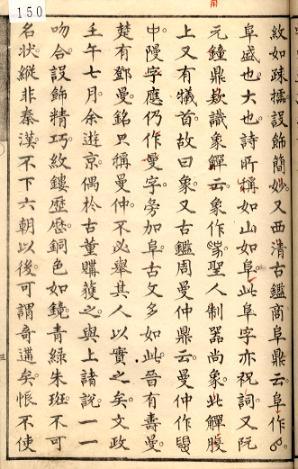 150
紋如踈櫺誤飾簡妙又西清古鑑商阜鼎云阜作
阜盛也大也詩所稱如山如阜此阜字亦祝詞又阮
元鐘鼎款識象觶云象作聖人制器尚象此觶腹
上又有犧首故曰象又古鑑周曼仲鼎云曼仲作
中隁字應仍作曼字旁加阜古文多如此晉有壽曼
楚有鄧曼銘只稱曼仲不必舉其人以實之矣文政
壬午七月余遊京偶於古董購獲之與上諸說一一
吻合設飾精巧紋鏤歷歷銅色如鏡青綠朱斑不可
名狀縱非秦漢不下六朝以後可謂奇遘矣悵不使